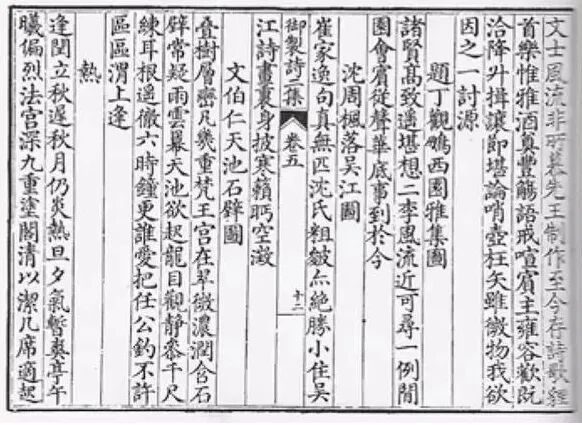 文士風流非所慕先王制作至今存詩歌貍
首樂惟雅酒奠豐觴語戒喧賓主雍容歡既
洽降升揖讓節堪論哨壺枉矢雖微物我欲
因之一討源
題丁觀鵬西園雅集圖
諸賢高致遥堪想二李風流近可尋一例閒
園會賓從聲華底事到於今
沈周楓落吳江圖
崔家逸句真無匹沈氏粗皴亦絶勝小住吳
御製詩二集 卷五 十二
江詩畫裏身披寒籟眄空澂
文伯仁天池石壁圖
叠樹層巒凡幾重梵王宮在翠微濃潤含石
壁常疑雨雲暴天池欲起龍目觀静叅千尺
練耳根遥徹六時鐘更誰愛把任公釣不許
區區渭上逢
熱
逢閏立秋遲秋月仍炎熱旦夕氣暫爽亭午
曦偏烈法宮深九重塗閣清以潔几席適起